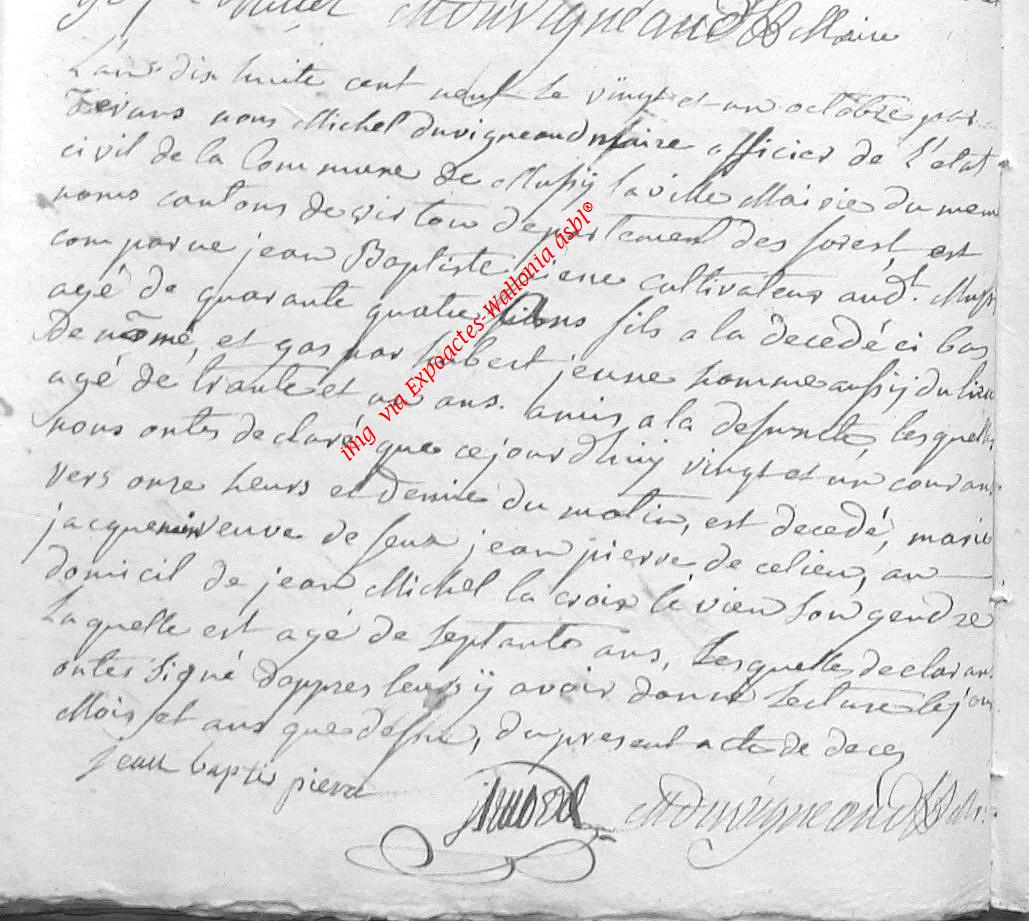 Duvigneaud Maire
L'an dix huite cent neuf le vingt et un octobre par
devans nous Michel Duvigneaud maire officier de L'etat
civil de la Commune de Mussÿ laville Mairie du meme
noms cantons de virton departement des forest est
comparue jean Baptiste cultivateur aud.t Mussÿ
agé de quarante quatre ans fils a la decedé ci bas
De nommé, et gaspar hubert jeune homme aussÿ du lieu
agé de trante et un ans. amis a la defuncte, lesquelles
nous ontes declaré que cejourdhuÿ vingt et un courans
vers onze heurs et demie du matin, est decedé, marie
jacquemin veuve de feux jean pierre de celieu, au
domicil de jean Michel la croix le vieu son gendre
Laquelle est agé de septante ans, Lesquelles declarans
ontes signé dappres leursÿ avoir donné Lecture les jour
Mois et ans que dessu, du present acte de deces
Jean baptis pierre
MDuvigneaud
img via Expoactes-Wallonia asbl®